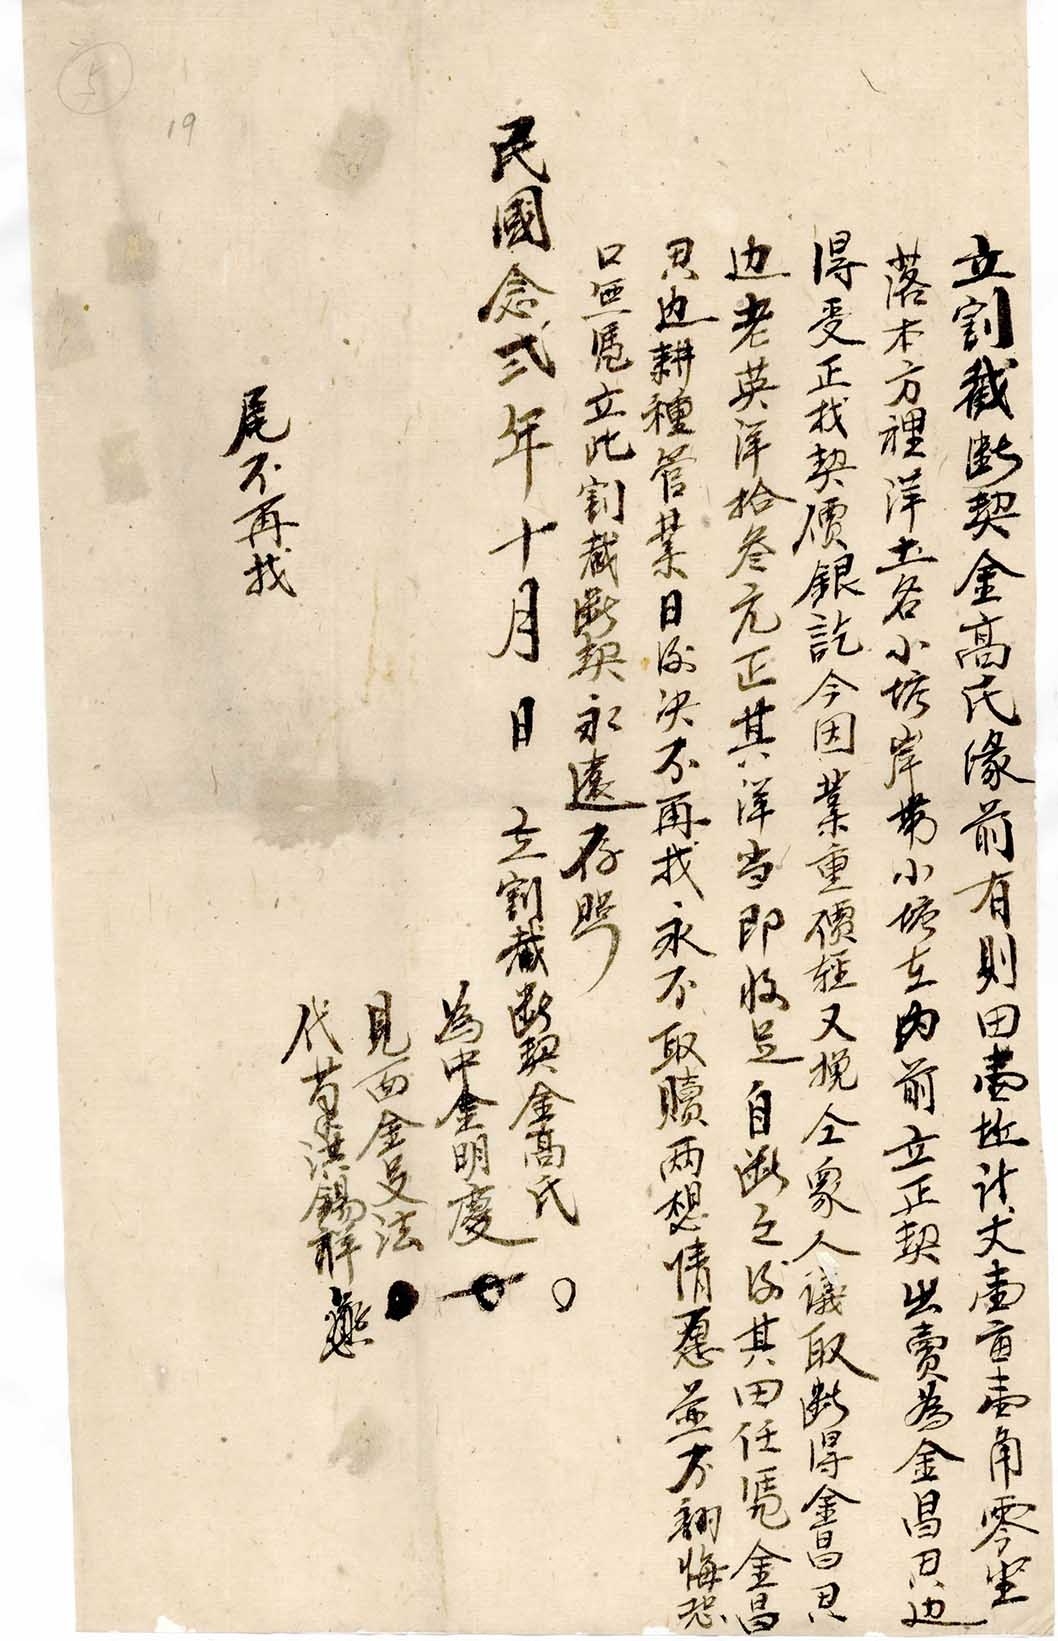 立割截断契金髙氏緣前有則田壷坵計丈壷亩壷角零坐
落本方裡洋土名小塘岸帯小塘在内前立正契出賣為金昌思边
得受正找契價銀訖今因業重價轻又挽仝衆人議取断得金昌思
边老英洋拾叁元正其洋当即收足自断之後其田任凴金昌
思边耕種管業日後决不再找永不取贖两想情愿並不翻悔恐
口無凴立此割截断契永遠存照
民國念弍年十月 日 立割截断契金髙氏
為中金明慶
見面金 法
代笔洪錫祥
尾不再找
5
19